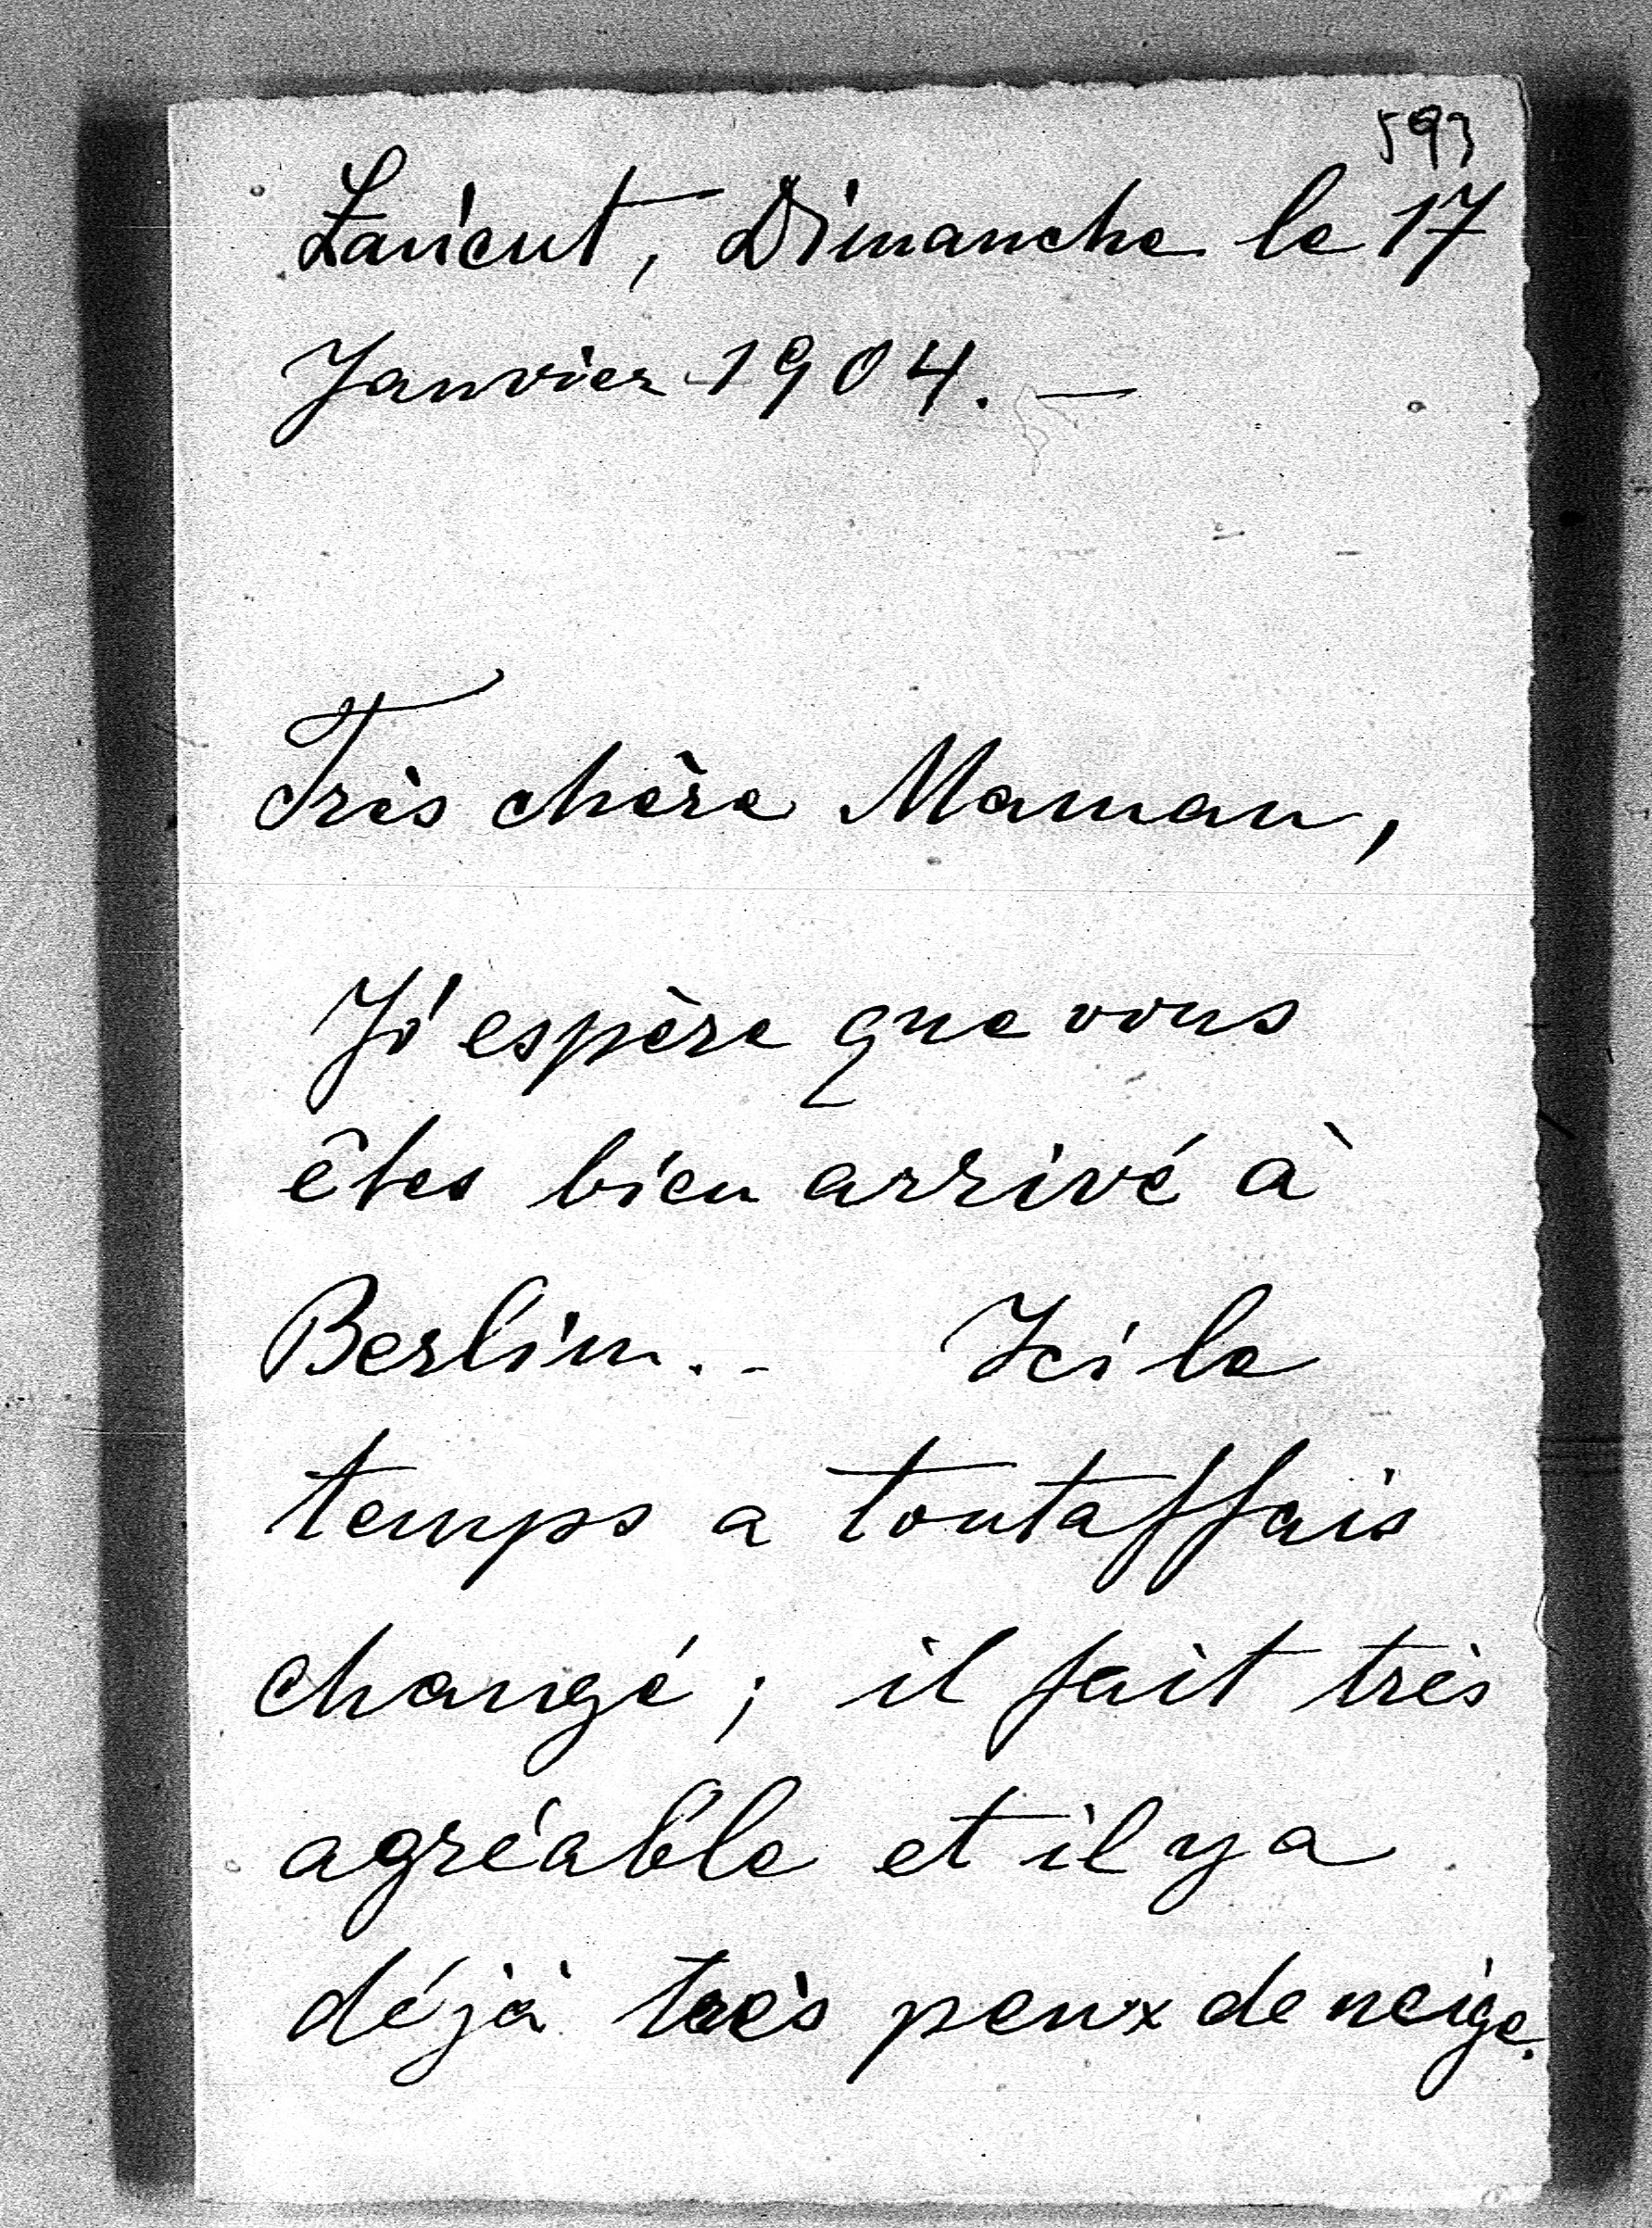 593
Łańcut, Dimanche le 17
Janvier 1904. —
Très chère Maman,
J'espère que vous
êtes bien arrivé à
Berlin. - Ici le
temps a toutaffais
changé ; il fait très
agréable et il y a
déjà très peux de neige.